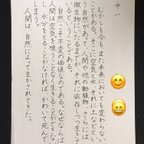 中一
むかしも今もまた未来においても変わらない
ことがある。そこに空気と水それに土などとい
う自然があって人間や他の動植物さらには
微生物にいたるまでがそれに依存しつつ生き
ているということである。
自然こそ不変の価値なのである。なぜならば
人間は空気を吸うことなく生きることができ
ないし水分をとることがなければかわいて死んで
しまう。
人間は自然によって生かされてきた。